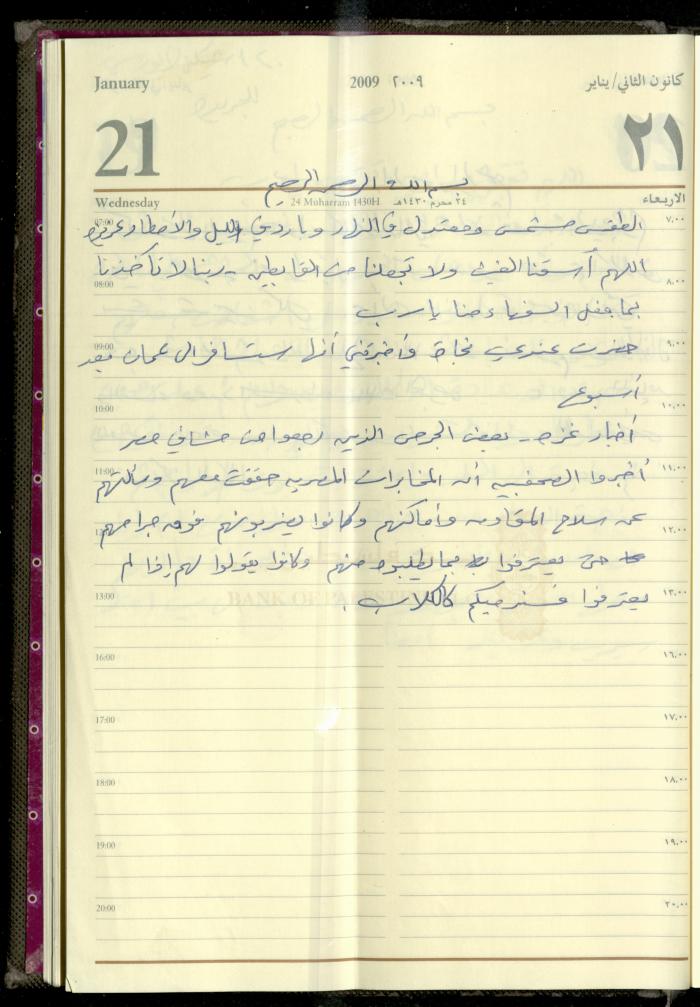 January 2009 ٢٠٠٩ كانون الثاني/يناير
21 ٢١
بسم الله الرحمن الرحيم
Wednesday 24 Muharram 1430H ٢٤ محرم ١٤٣٠هـ الاربعاء
07:00 ٧,٠٠
الطقس مشمس ومعتدل في النهار وبارد في الليل والأمطار عزيزة
اللهم أسقنا الغيث ولا تجعلنا من القانطين - ربنا لا تأخذنا
08:00 ٨,٠٠
بما فعل السفهاء منا يا رب
09:00 ٩,٠٠
حضرت عندي نجاة وأخبرتني أنها ستسافر الى عمان بعد
أسبوع
10:00 ١٠,٠٠
أخبار غزة - بعض الجرحى الذين رجعوا من مشافي مصر
11:00 ١١,٠٠
أخبروا الصحفيين أن المخابرات المصرية حققت معهم وسألتهم
عن سلاح المقاومة وأماكنهم وكانوا يضربونهم فوق جراحهم
١٢,٠٠
حتى يعترفوا بما يطلبوه منهم وكانوا يقولوا لهم إذا لم
13:00 ١٣,٠٠
يعترفوا فسنرميكم كالكلاب.
BANK OF PALESTINE
16:00 ١٦,٠٠
17:00 ١٧,٠٠
18:00 ١٨,٠٠
19:00 ١٩,٠٠
20:00 ٢٠,٠٠